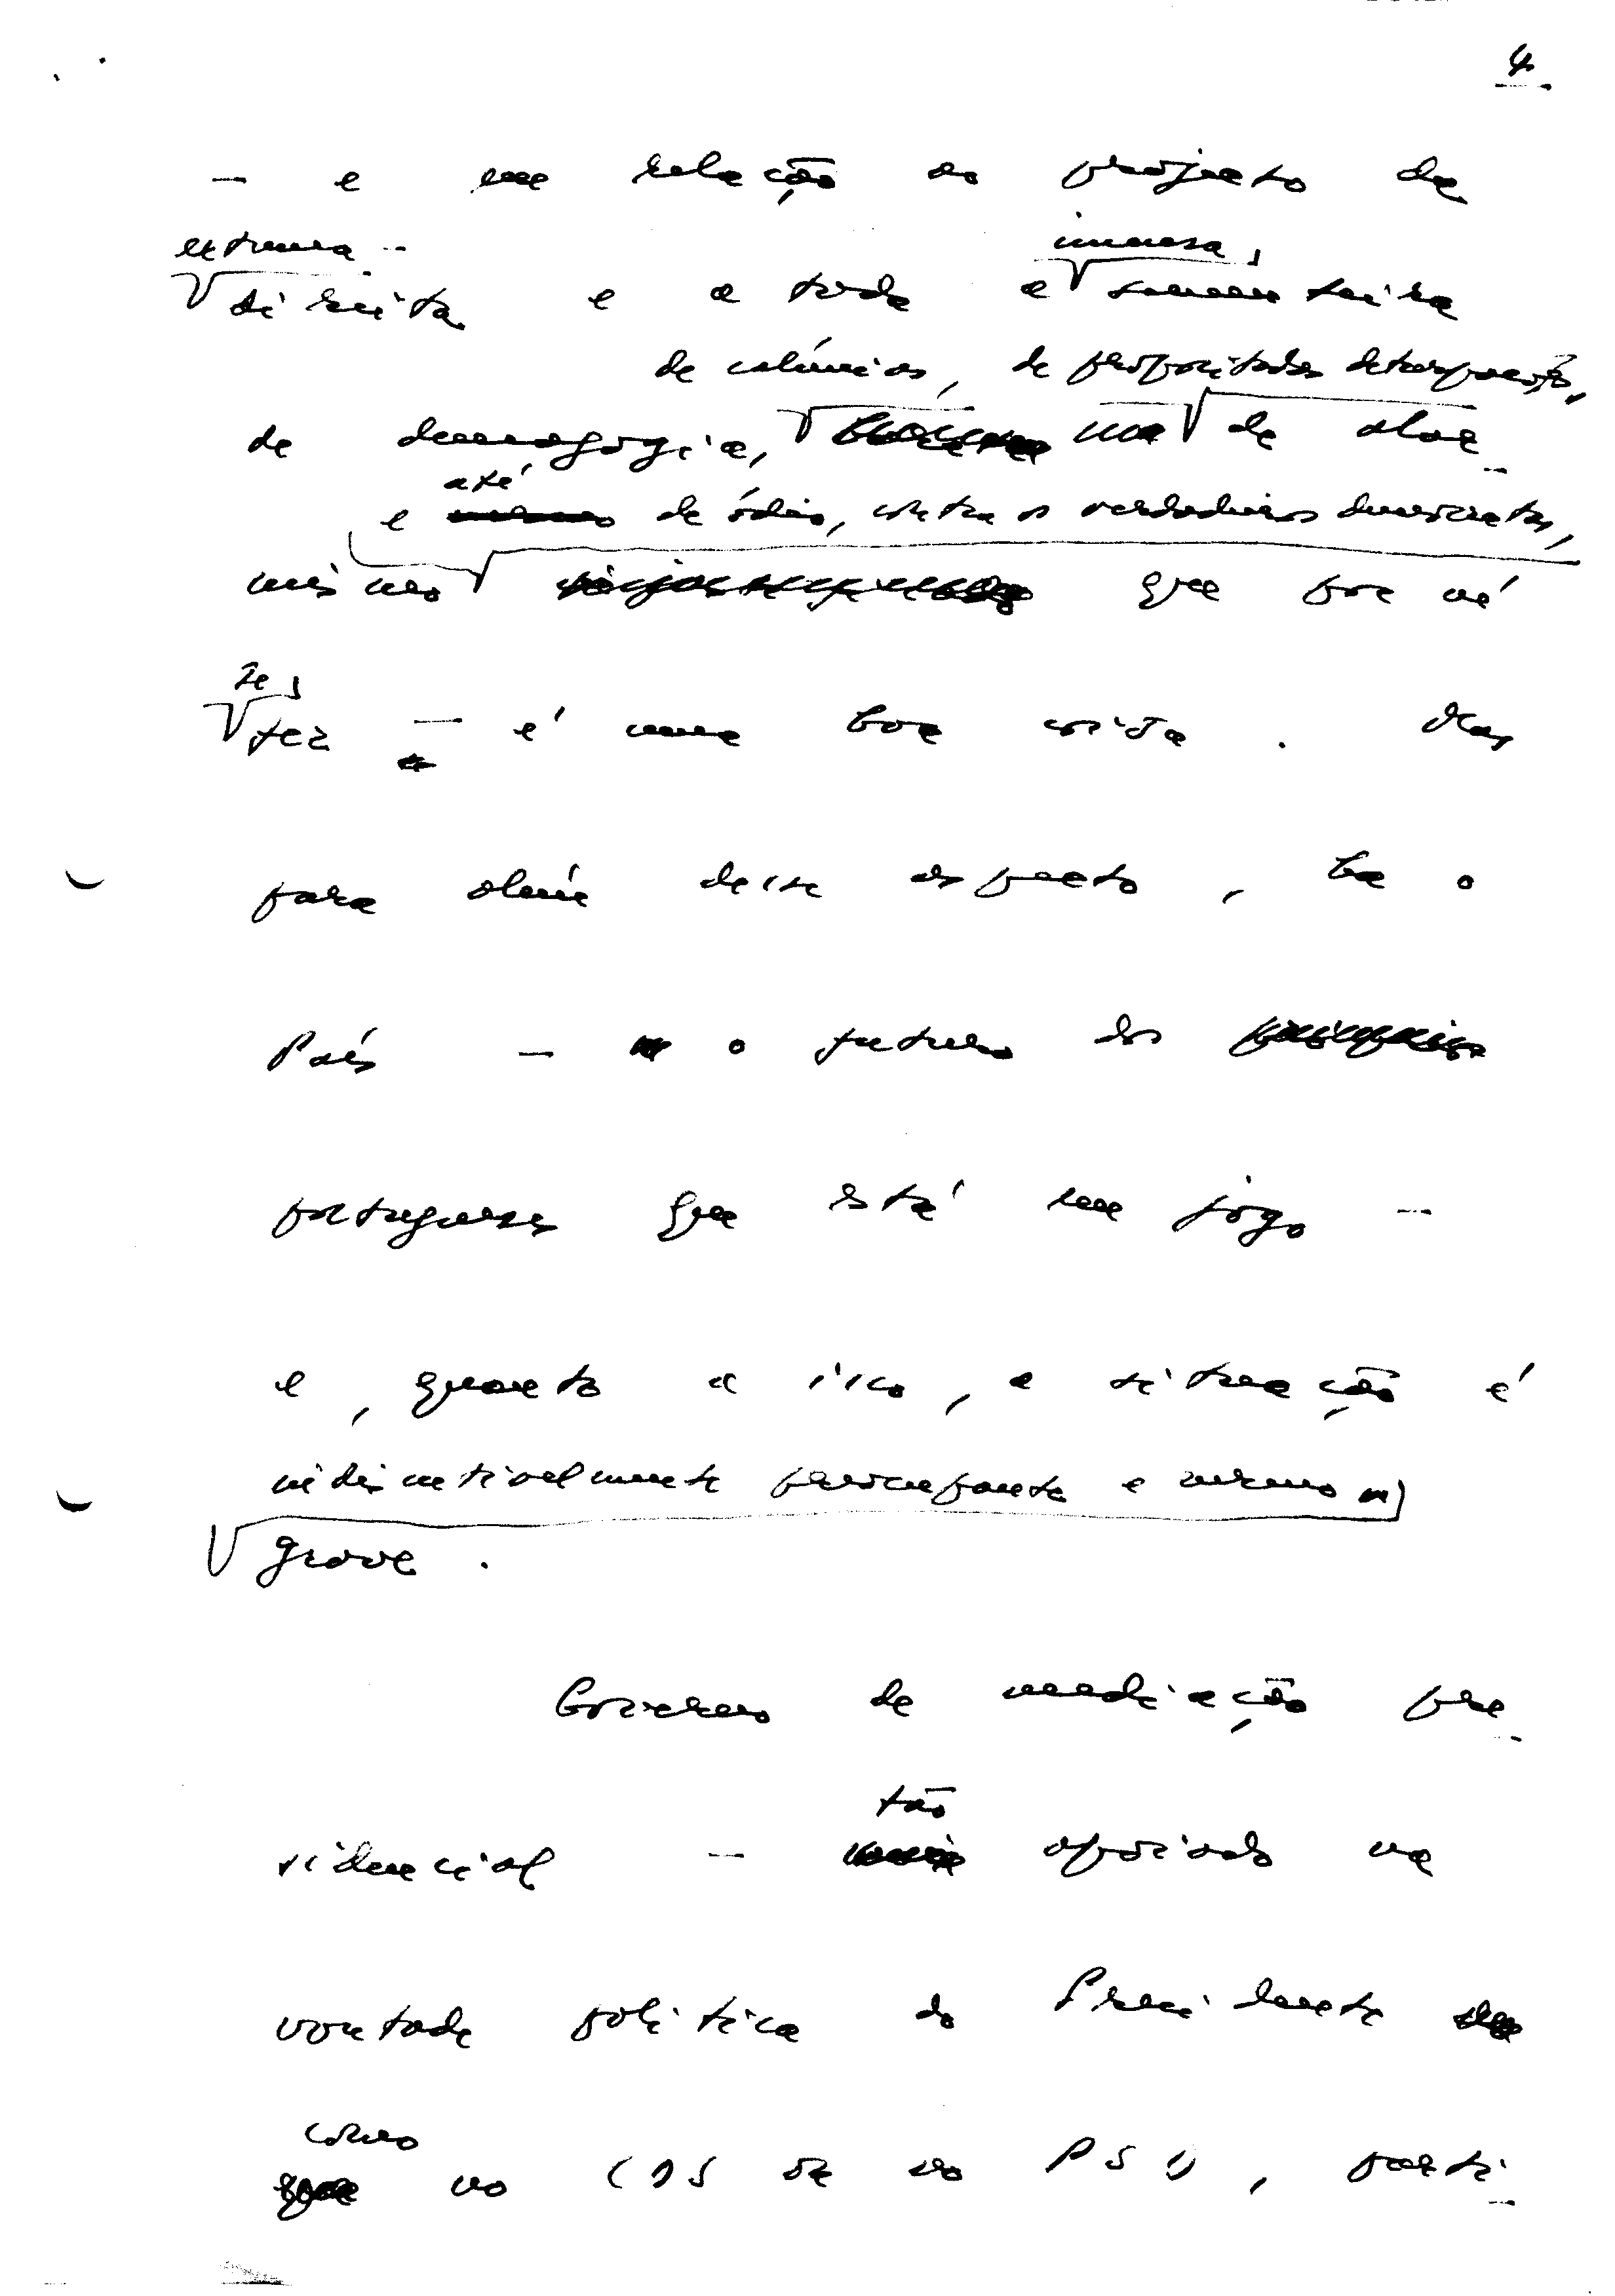 4
— e em relação ao projecto de
extrema-
direita e a toda a
imensa,
de calúnias, de propositadas deturpações,
de demagogia, de alar-
até
e de ódio, contra os verdadeiros democratas,
mismo que por aí
se
fez — é uma boa coisa. Mas
para além desse aspecto, há o
País — o futuro dos
portugueses que está em jogo —
e, quanto a isso, a situação é
indiscutivelmente preocupante e mesmo
grave.
Governo de mediação pre-
sidencial — apoiado na
tão
vontade política do Presidente
como
no CDS ou no PSD, parti-